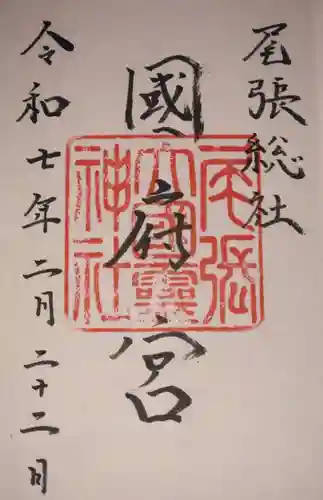 尾張総社
國府宮
尾張
大國霊
神社
令和七年二月二十二日